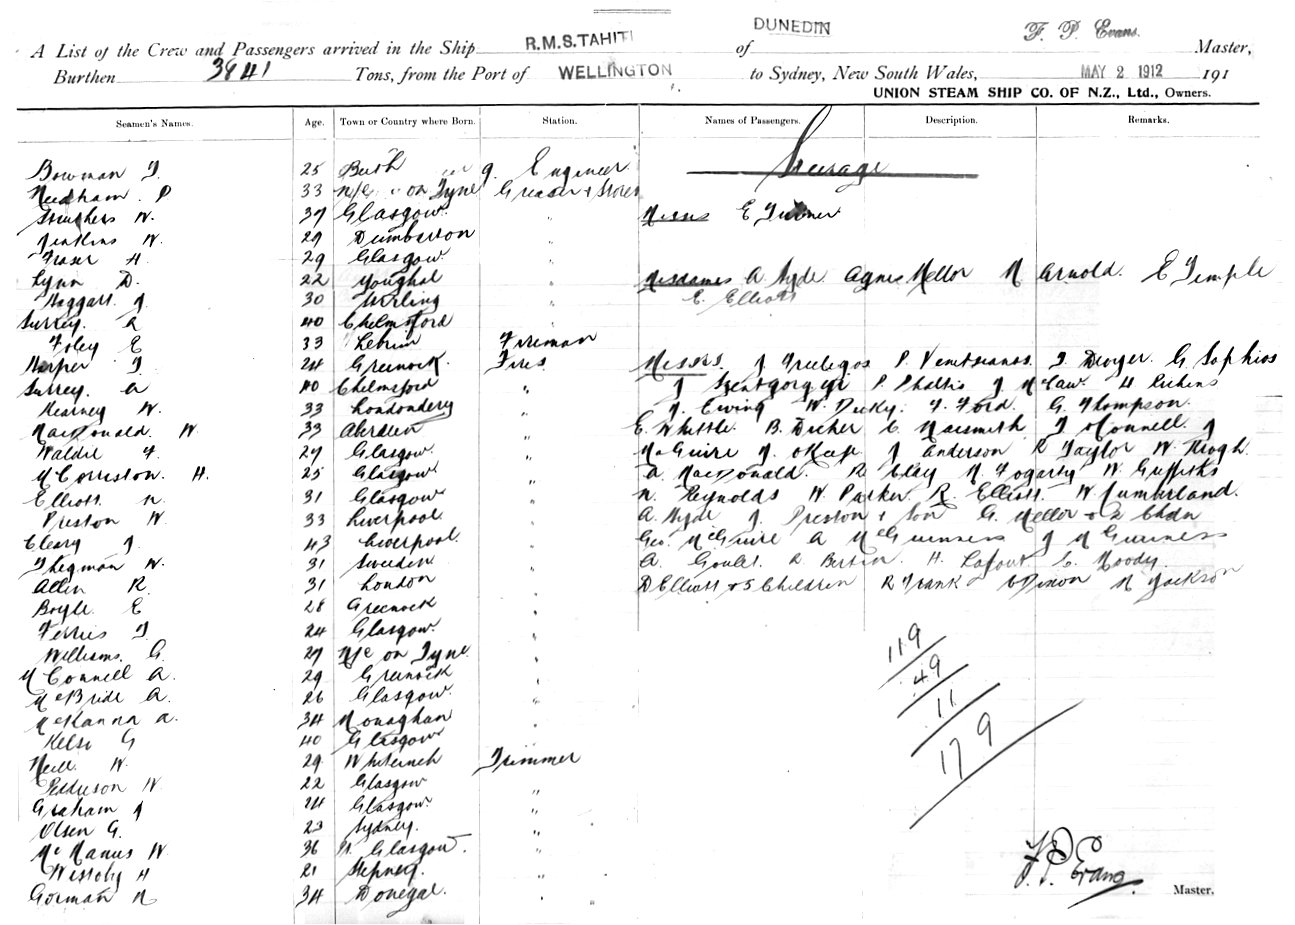 A List of the Crew and Passengers arrived in the Ship R.M.S. TAHITI of DUNEDIN F. P. Evans. Master,
Burthen 3841 Tons, from the Port of WELLINGTON to Sydney, New South Wales, MAY 2 1912 191
UNION STEAM SHIP CO. OF N.Z., Ltd., Owners.
Seamen's Names. Age. Town or Country where Born. Station. Names of Passengers. Description. Remarks.
Steerage
Bowman T 25 9. Engineer
Needham P 33 N/C on Tyne Greaser + Stores
Struthers W. 37 Glasgow "
Jenkins W. 27 Dumbarton "
Fraser H 29 Glasgow "
Lynn D. 22 Youghal "
Haggart J 30 Stirling "
Surrey. A 40 Chelmsford "
Foley E 33 Fireman
Harper T 24 Greenock Fires
Surrey. A 40 Chelmsford "
Kearney W. 33 Londonderry "
MacDonald. W. 33 Aberdeen "
Waldie F. 27 Glasgow "
McCorriston. H. 25 Glasgow "
Elliott. N. 31 Glasgow "
Preston W. 33 Liverpool "
Cleary J. 43 Liverpool "
W. 31 Sweden "
Allen R. 31 London "
Boyle E 28 Greenock "
Ferries T 24 Glasgow "
Williams. G. 27 N/C on Tyne "
McConnell A. 29 Greenock "
McBride A. 26 Glasgow "
McKanna A. 34 Monaghan "
Kelso G 40 Glasgow "
Neill W. 29 Whiteinch Trimmer
W. 22 Glasgow "
Graham J 24 Glasgow "
Olsen G. 23 Sydney. "
McManus W. 36 Glasgow. "
Westoby H 21 Stepney. "
Gorman 34 Donegal. "
Misses E Turner
Mesdames A. Hyde Agnes Mellor M Arnold. E Temple
E. Elliott
Messrs. J P. T. Dwyer. G Sophios
J P. J McCaw. H
J. Ewing W. Dicky. F. Ford. G. Thompson.
E. Whittle B. Dicher C Naismith T O'Connell. J
McGuire M. O'Keefe J Anderson R Taylor W. Keogh
A. MacDonald. R Clay M. Fogarty W. Griffiths
N. Reynolds W. Parker R. Elliott. W Cumberland.
A. Hyde J. Preston + Son G. Mellor + 2 Chdn
Geo. McGuire A McGuinness J McGuiness
A. Gould. H. Lafout C. Moody.
D Elliott + 5 Children R Frank C Dixon M Jackson
119
49
11
179
F. P. Evans. Master.